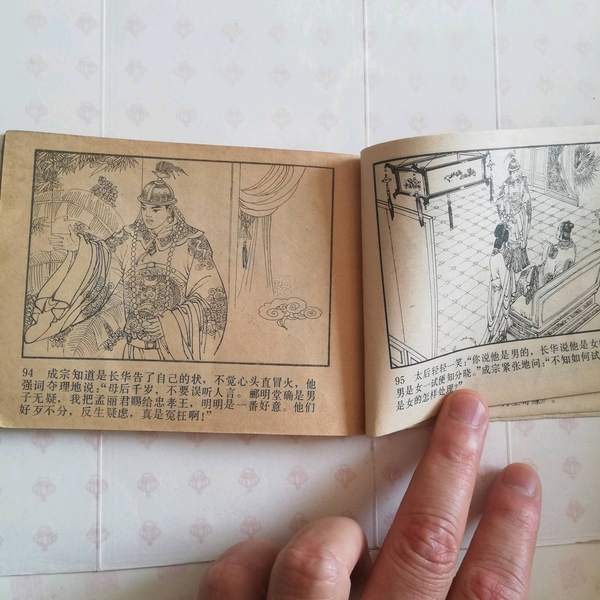 94 成宗知道是长华告了自己的状，不觉心头直冒火，他
强词夺理地说：“母后千岁，不要误听人言。郦明堂确是男
子无疑，我把孟丽君赐给忠孝王，明明是一番好意。他们
好歹不分，反生疑虑，真是冤枉啊！”
95 太后轻轻一笑：“你说他是男的，长华说他是女
男是女一试便知分晓。”成宗紧张地问：“不知如何试
是女的怎样处理？”